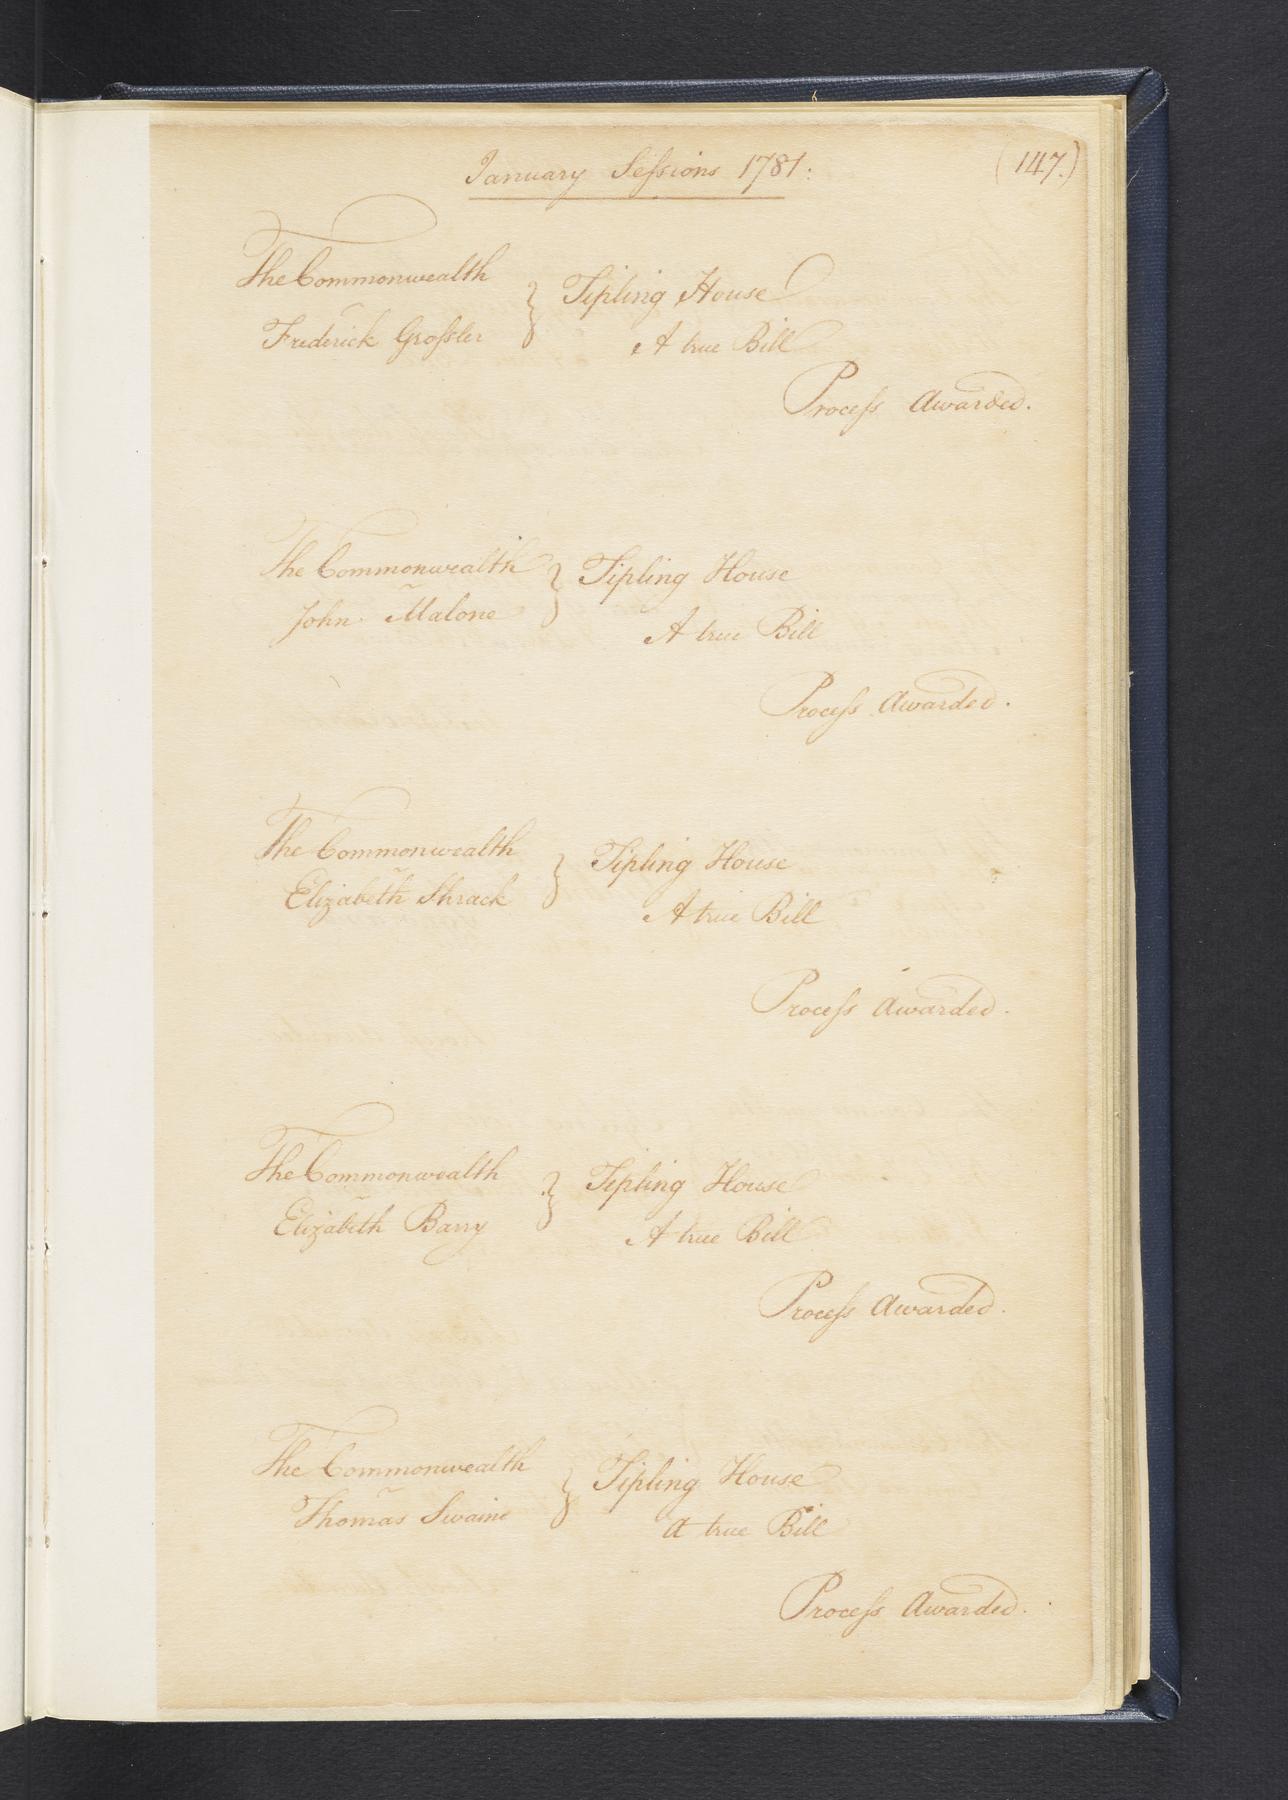 January Sessions 1781:
(147.)
The Commonwealth } Tipling House
Frederick Grossler A true Bill
Process Awarded.
The Commonwealth } Tipling House
John Malone A true Bill
Process Awarded.
The Commonwealth } Tipling House
Elizabeth Shrack A true Bill
Process Awarded.
The Commonwealth } Tipling House
Elizabeth Barry A true Bill
Process Awarded.
The Commonwealth } Tipling House
Thomas Swaine A true Bill
Process Awarded.